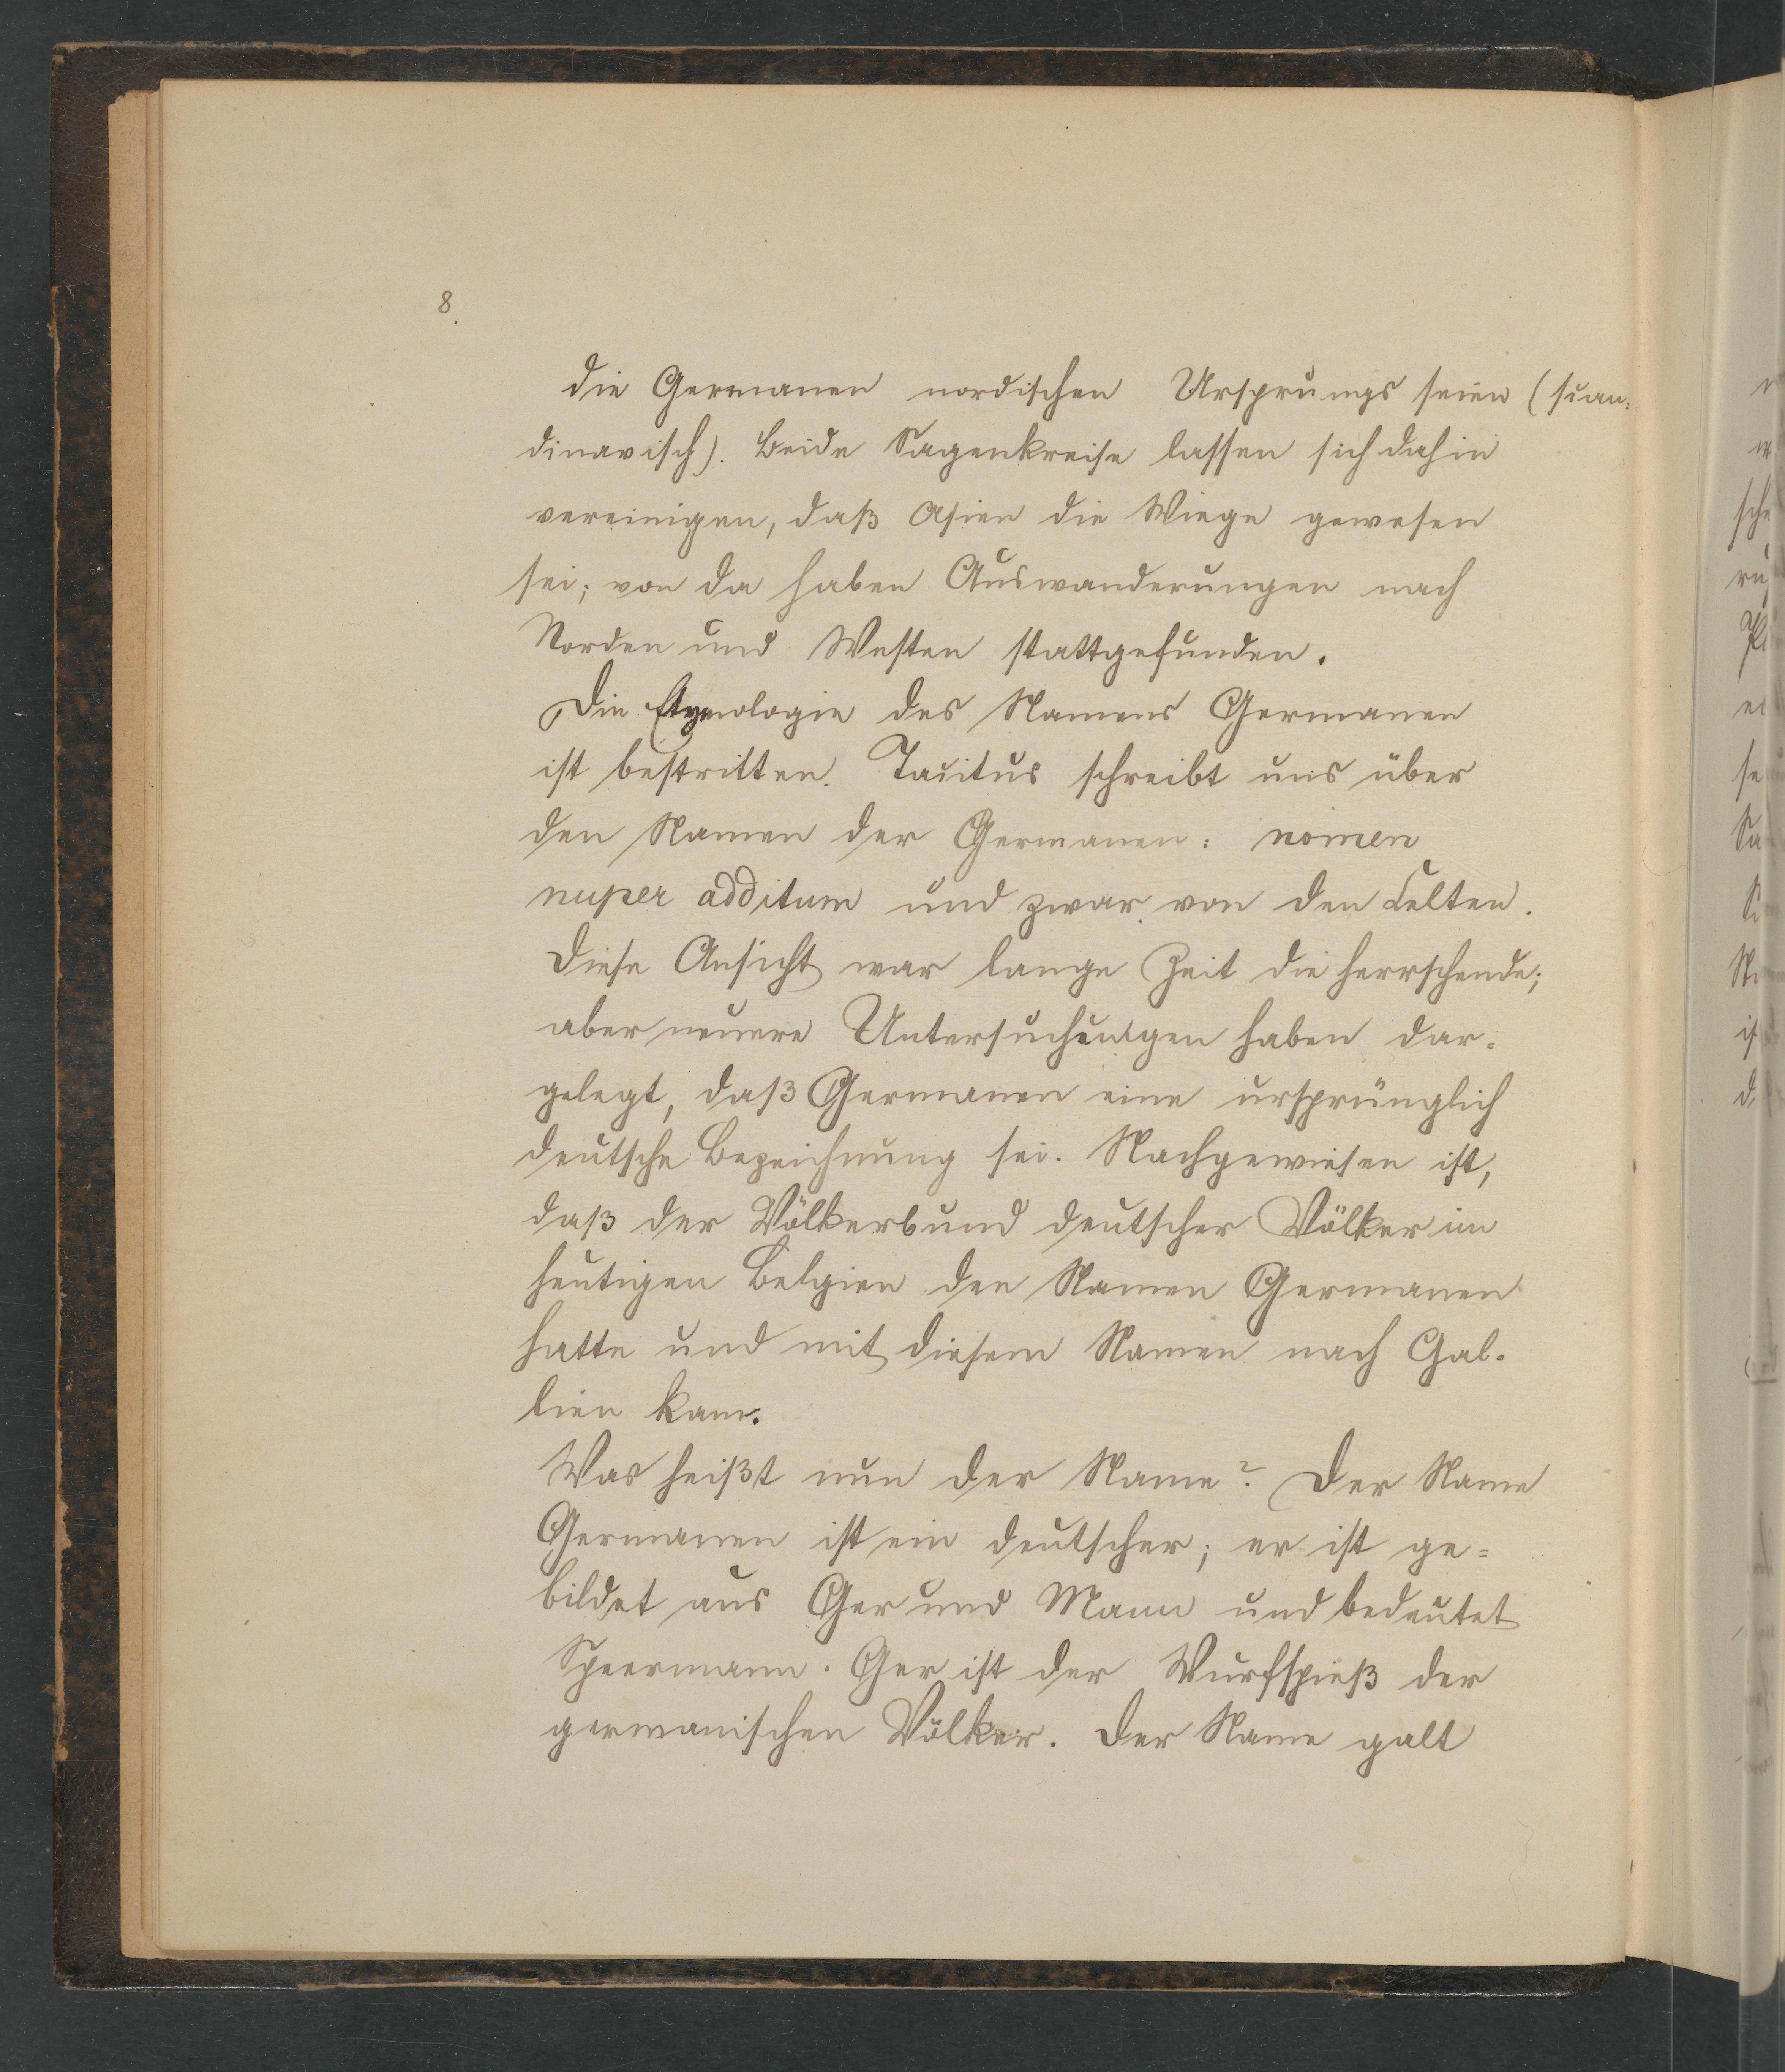 8.
die Germanen nordischen Ursprungs seien (scan-
dinavisch). Beide Sagenkreise lassen sich dahin
vereinigen, daß Asien die Wiege gewesen
sei; von da haben Auswanderungen nach
Norden und Westen stattgefunden.
Die Etymologie des Namens Germanen
ist bestritten. Tacitus schreibt uns über
den Namen der Germanen: nomen
nuper additum und zwar von den Celten.
Diese Ansicht war lange Zeit die herrschende;
aber neuere Untersuchungen haben dar-
gelegt, daß Germanen eine ursprünglich
deutsche Bezeichnung sei. Nachgewiesen ist,
daß der Völkerbund deutscher Völker im
heutigen Belgien den Namen Germanen
hatte und mit diesem Namen nach Gal-
lien kam.
Was heißt nun der Name? Der Name
Germanen ist ein deutscher; er ist ge=
bildet aus Ger und Mann und bedeutet
Speermann. Ger ist der Wurfspieß der
germanischen Völker. Der Name galt